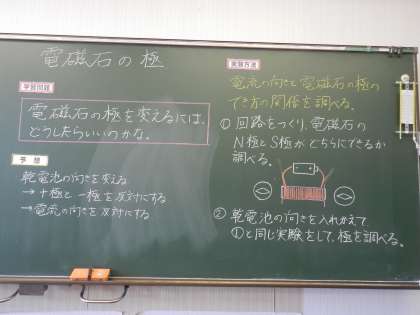 電磁石の極
学習問題
電磁石の極を変えるには、
どうしたらいいのかな。
予想
乾電池の向きを変える
→+極と-極を反対にする
→電流の向きを反対にする
実験方法
電流の向きと電磁石の極の
でき方の関係を調べる。
① 回路をつくり、電磁石の
N極とS極がどちらにできるか
調べる。
② 乾電池の向きを入れかえて
①と同じ実験をして、極を調べる。